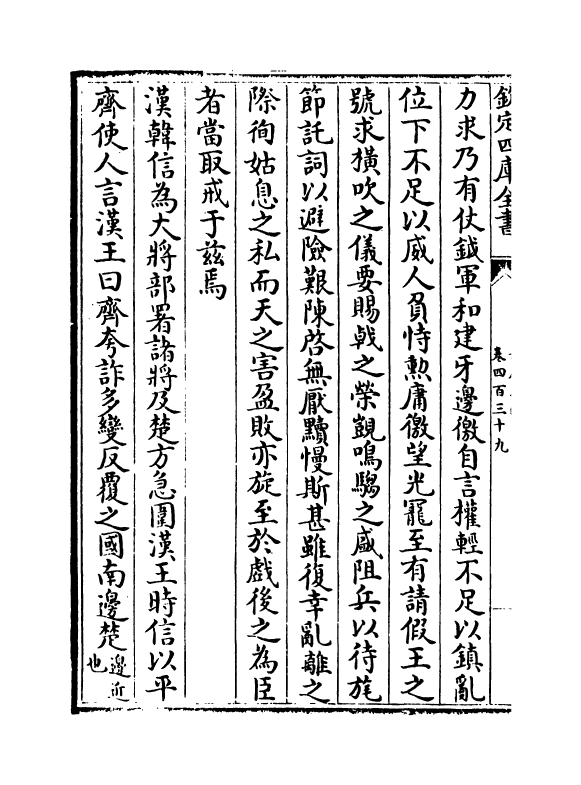 欽定四庫全書
卷四百三十九
力求乃有仗鉞軍和建牙邊徼自言權輕不足以鎮亂
位下不足以威人負恃勲庸徼望光寵至有請假王之
號求橫吹之儀要賜戟之榮覬鳴騶之盛阻兵以待旄
節託詞以避險艱陳啓無厭黷慢斯甚雖復幸亂離之
際徇姑息之私而天之害盈敗亦旋至於戲後之為臣
者當取戒于兹焉
漢韓信為大將部署諸將及楚方急圍漢王時信以平
齊使人言漢王曰齊夸詐多變反覆之國南邊楚邊近也